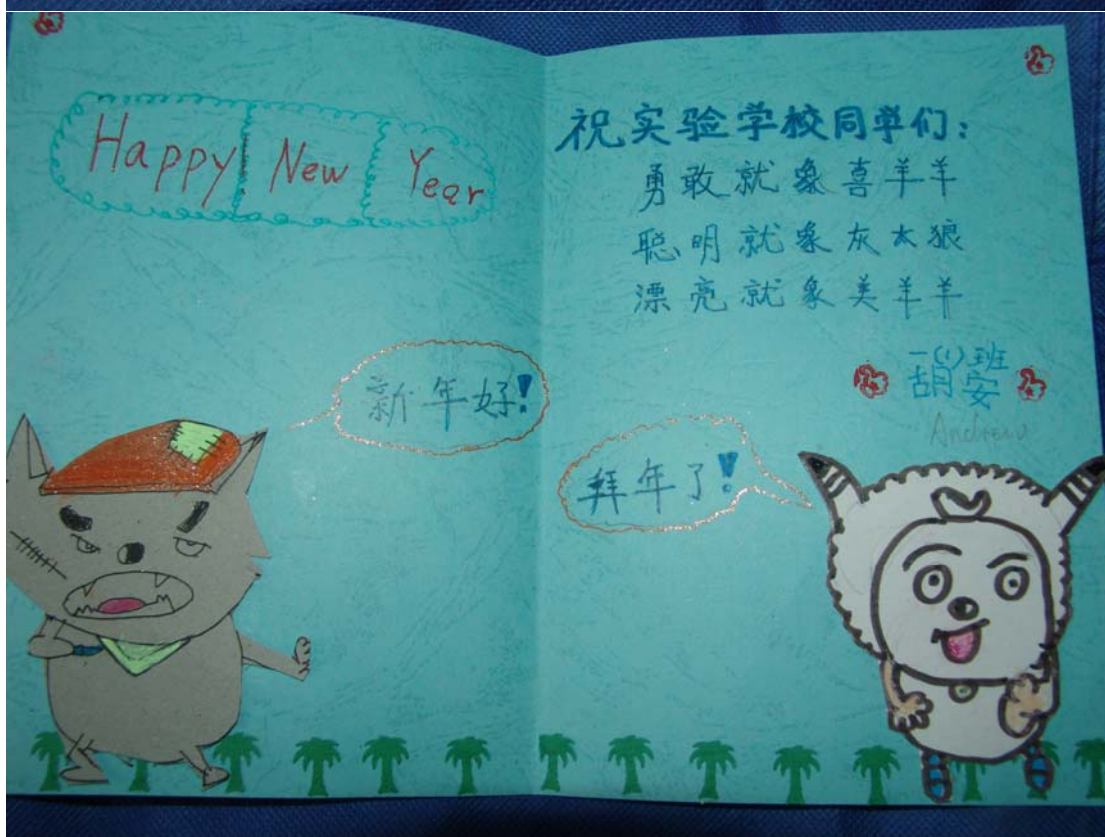 Happy New Year
祝实验学校同学们:
勇敢就象喜羊羊
聪明就象灰太狼
漂亮就象美羊羊
一(1)班
胡安
Andrew
新年好!
拜年了!